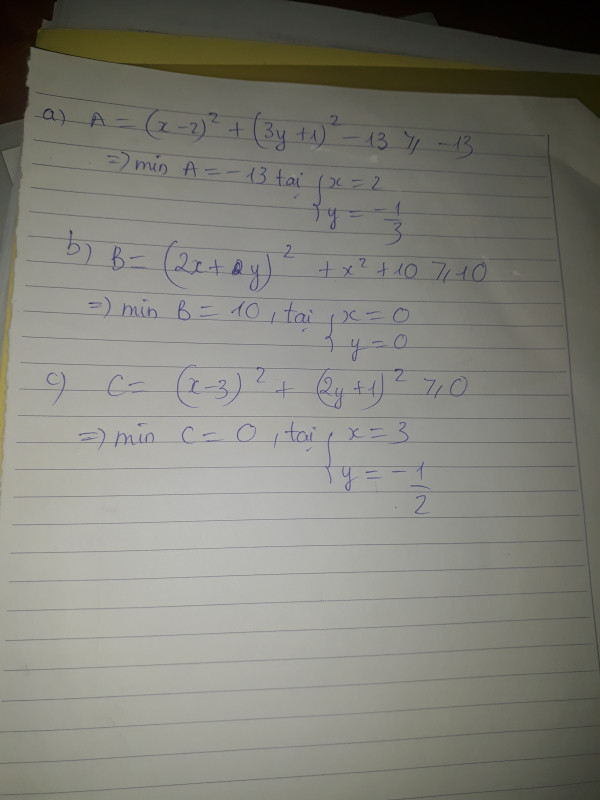 a) A = (x-2)² + (3y+1)² - 13 ⩾ -13
=> min A = -13 tại { x = 2
y = -1/3
b) B = (2x+2y)² + x² + 10 ⩾ 10
=> min B = 10, tại { x = 0
y = 0
c) C = (x-3)² + (2y+1)² ⩾ 0
=> min C = 0, tại { x = 3
y = -1/2